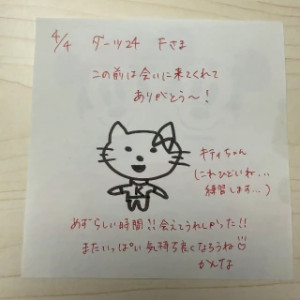 4/4 ダーツ24 Fさま
この前は会いに来てくれて
ありがとう〜!
キティちゃん
(これひどいね...
練習します...)
K
めずらしい時間!!会えてうれしかった!!
またいっぱい気持ち良くなろうね♡